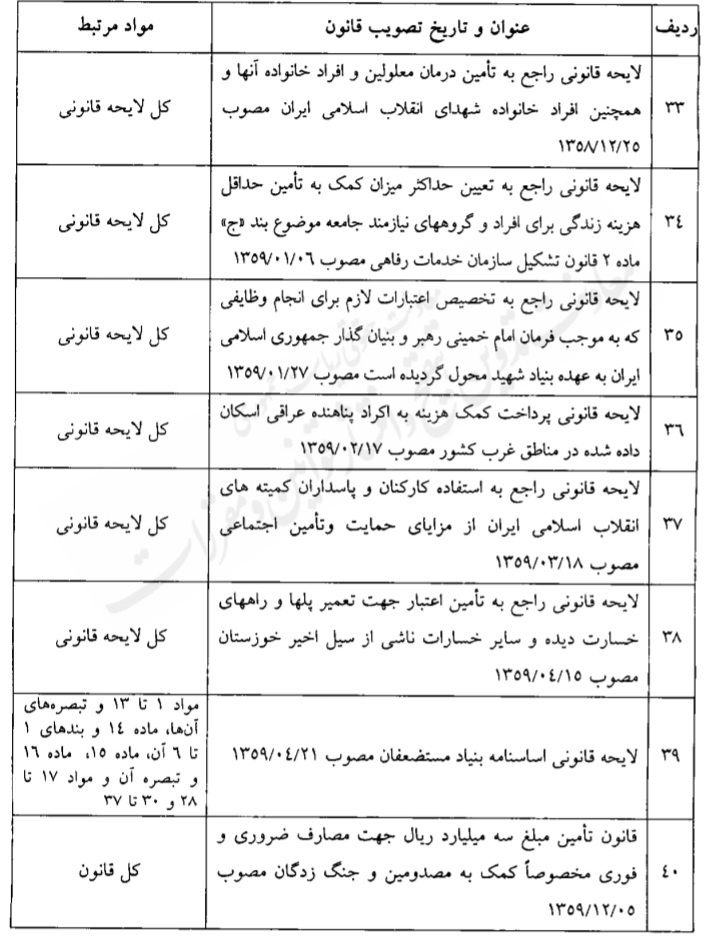 ردیف عنوان و تاریخ تصویب قانون مواد مرتبط
لایحه قانونی راجع به تأمین درمان معلولین و افراد خانواده آنها و
۳۳ همچنین افراد خانواده شهدای انقلاب اسلامی ایران مصوب کل لایحه قانونی
۱۳۵۸/۱۲/۲۵
لایحه قانونی راجع به تعیین حداکثر میزان کمک به تأمین حداقل
۳٤ هزینه زندگی برای افراد و گروههای نیازمند جامعه موضوع بند «ج» کل لایحه قانونی
ماده ۲ قانون تشکیل سازمان خدمات رفاهی مصوب ۱۳۵۹/۰۱/۰۶
لایحه قانونی راجع به تخصیص اعتبارات لازم برای انجام وظایفی
۳۵ که به موجب فرمان امام خمینی رهبر و بنیان گذار جمهوری اسلامی کل لایحه قانونی
ایران به عهده بنیاد شهید محول گردیده است مصوب ۱۳۵۹/۰۱/۲۷
لایحه قانونی پرداخت کمک هزینه به اکراد پناهنده عراقی اسکان
۳٦ داده شده در مناطق غرب کشور مصوب ۱۳۵۹/۰۲/۱۷ کل لایحه قانونی
لایحه قانونی راجع به استفاده کارکنان و پاسداران کمیته های
۳۷ انقلاب اسلامی ایران از مزایای حمایت وتأمین اجتماعی کل لایحه قانونی
مصوب ۱۳۵۹/۰۳/۱۸
لایحه قانونی راجع به تأمین اعتبار جهت تعمیر پلها و راههای
۳۸ خسارت دیده و سایر خسارات ناشی از سیل اخیر خوزستان کل لایحه قانونی
مصوب ۱۳۵۹/۰٤/۱۵
۳۹ لایحه قانونی اساسنامه بنیاد مستضعفان مصوب ۱۳۵۹/۰٤/۲۱
مواد ۱ تا ۱۳ و تبصره‌های
آن‌ها، ماده ۱٤ و بندهای ۱
تا ٦ آن، ماده ۱۵، ماده ۱٦
و تبصره آن و مواد ۱۷ تا
۲۸ و ۳۰ تا ۳۷
قانون تأمین مبلغ سه میلیارد ریال جهت مصارف ضروری و
٤۰ فوری مخصوصاً کمک به مصدومین و جنگ زدگان مصوب کل قانون
۱۳۵۹/۱۲/۰۵